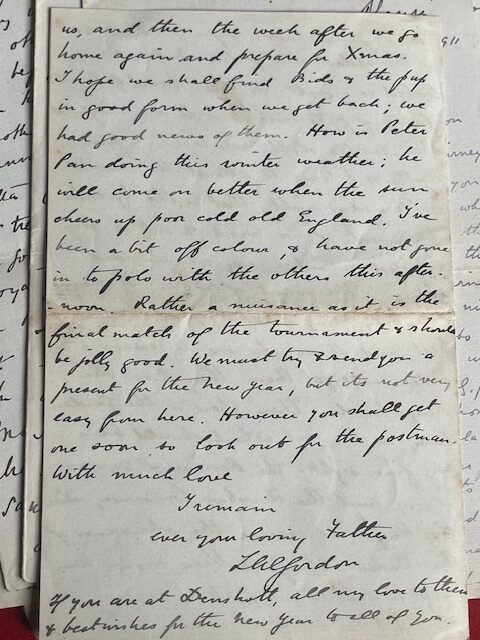 us, and then the week after we go
home again and prepare for Xmas.
I hope we shall find Bids & the pup
in good form when we get back; we
had good news of them. How is Peter
Pan doing this winter weather; he
will come on better when the sun
cheers up poor cold old England. I've
been a bit off colour, & have not gone
in to polo with the others this after-
-noon. Rather a nuisance as it is the
final match of the tournament & should
be jolly good. We must try & send you a
present for the New Year, but its not very
easy from here. However you shall get
one soon, so look out for the postman.
With much love
I remain
ever your loving Father
Gordon
If you are at Denshott, all my love to them
& best wishes for the New Year to all of you.